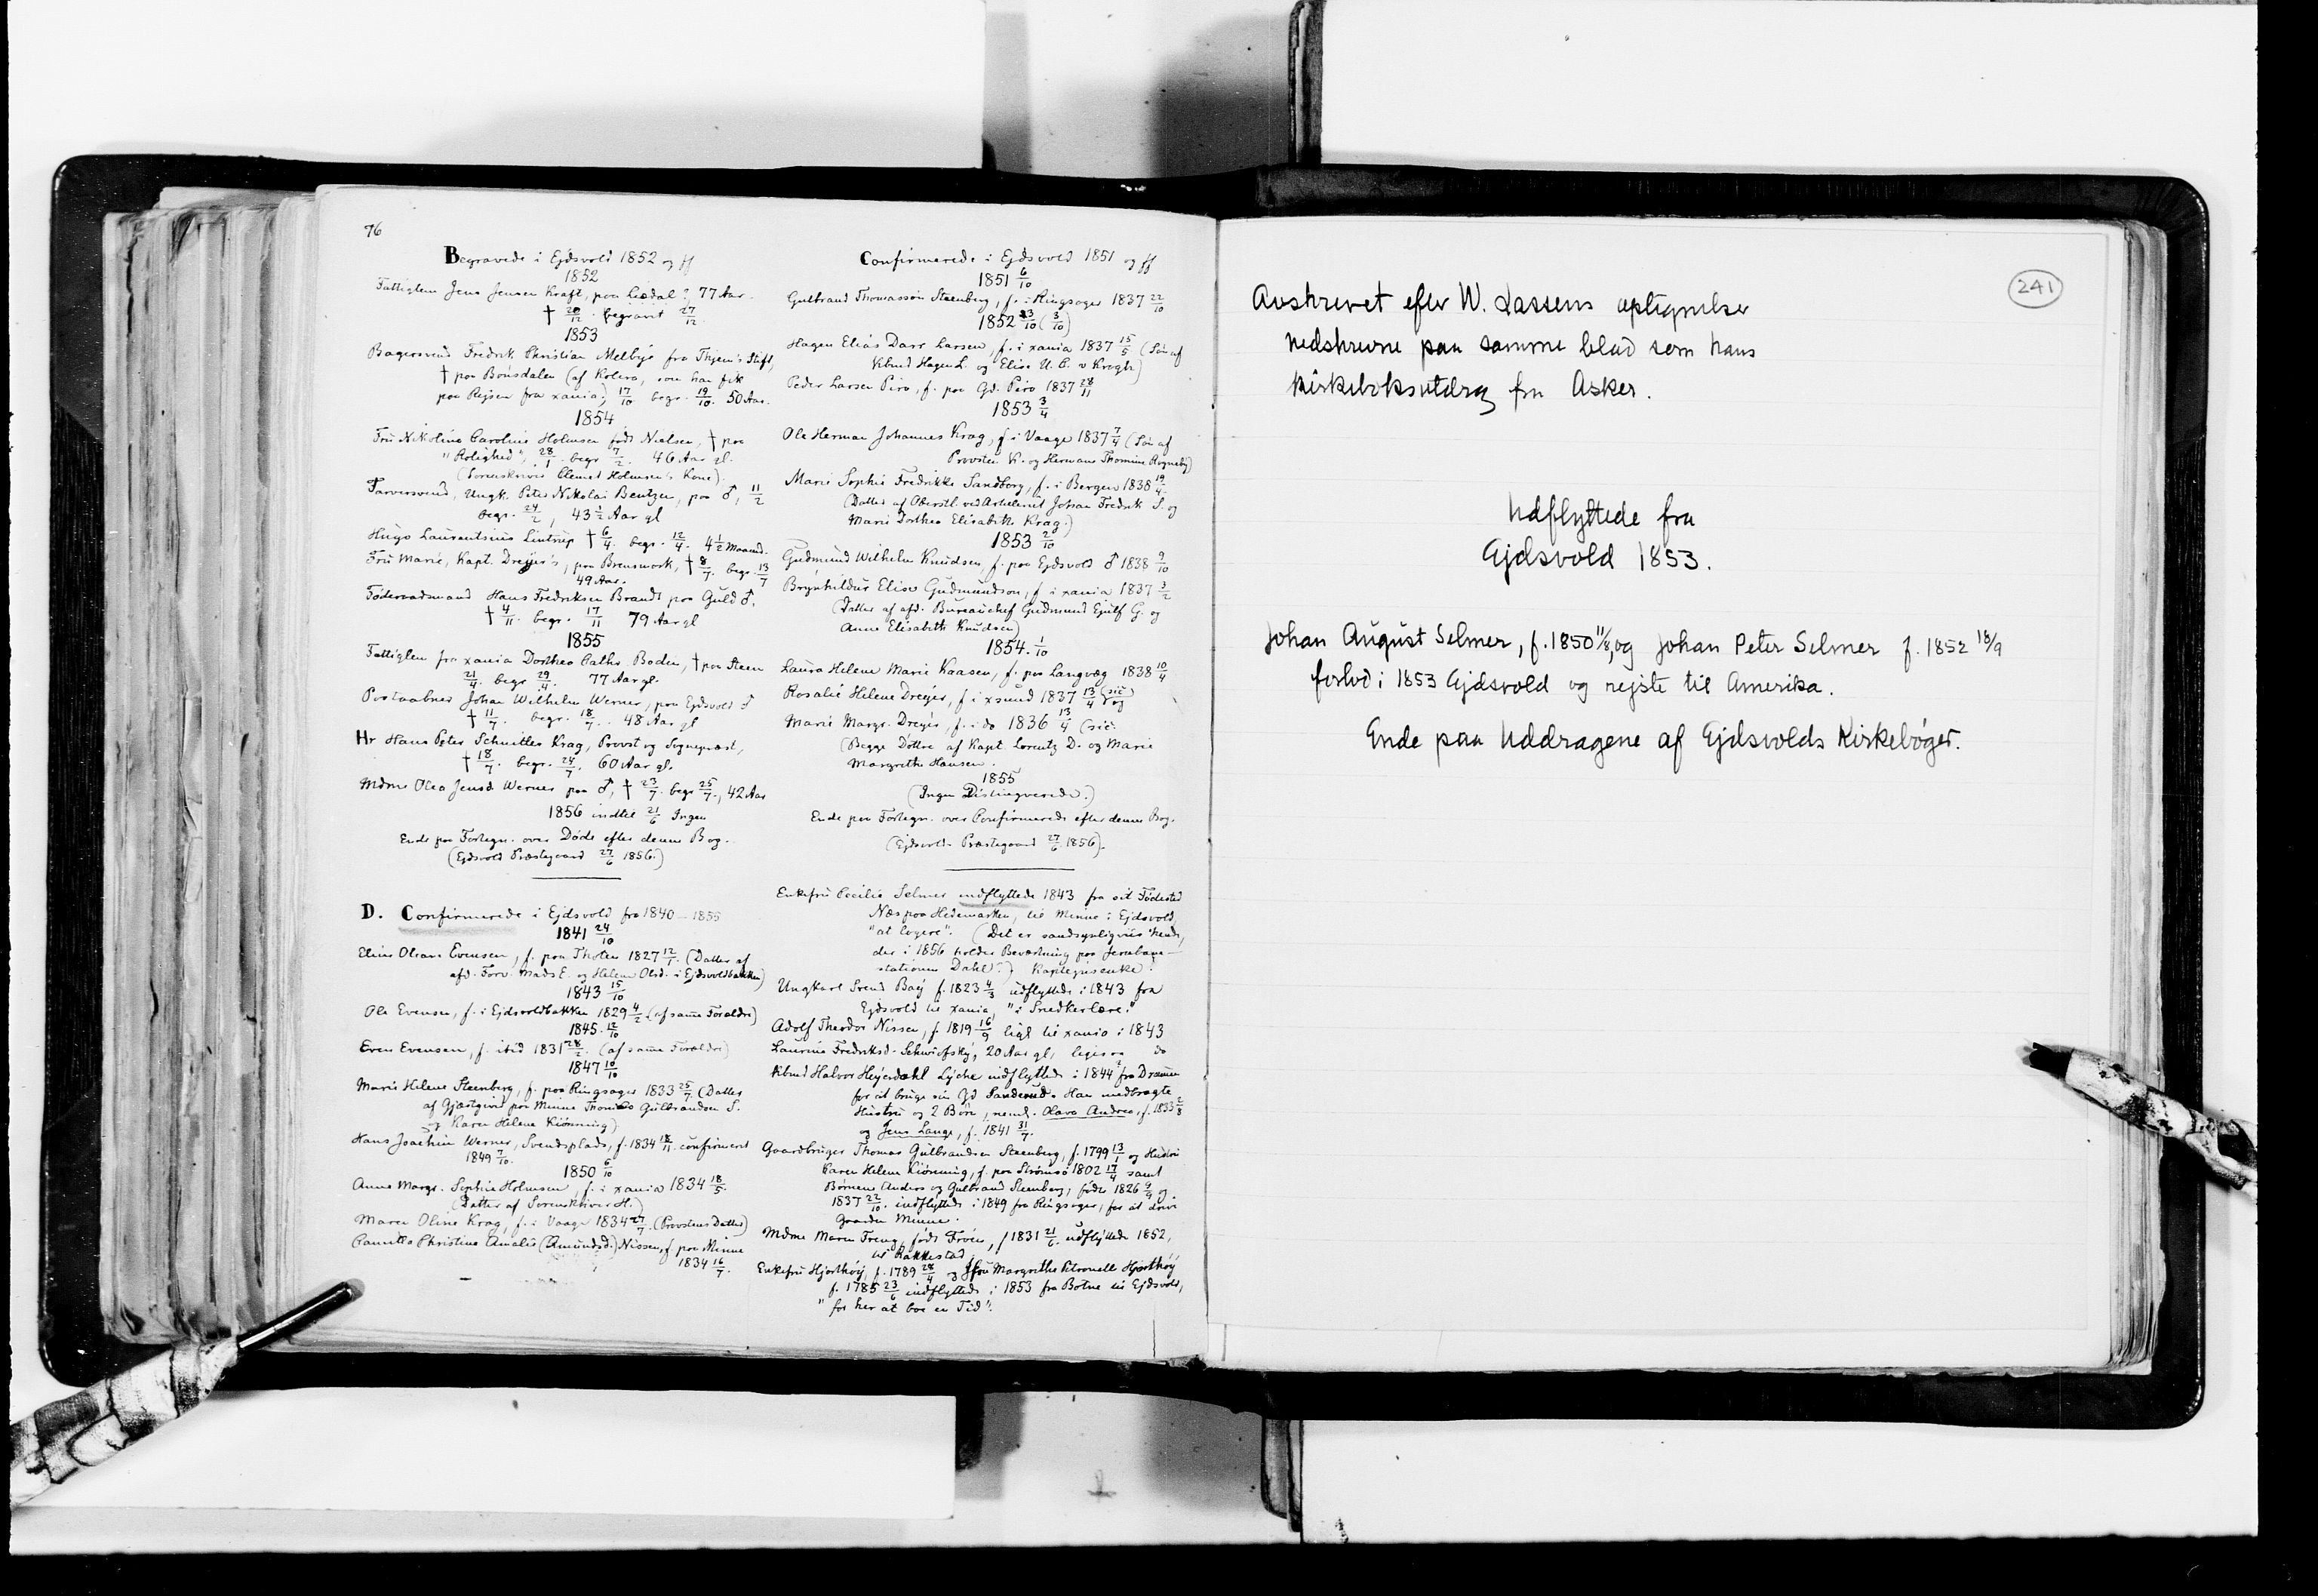 76
Begravede i Ejdsvold 1852 og ff
1852
Fattiglem Jens Jensen Kraft, paa Lisdal?, 77 Aar
† 20/12. begravet 27/12.
1853
Bagersvend Fredrik Christian Melbye fra Thjem's Stift,
† paa Bonsdalen (af Kolera, som han fik
paa Rejsen fra xania) 17/10 begr. 19/10. 50 Aar.
1854
Fru Nikoline Caroline Holmsen født Nielsen, † paa
"Rolighed", 28/1. begr 7/2. 46 Aar gl.
(Sorenskriver Clemet Holmsen's Kone).
Farversvend, Ungk. Peter Nikolai Bentzen, paa ♂, 11/2
begr. 24/2, 43 1/2 Aar gl
Hugo Laurentsius Lintrup † 6/4. begr. 12/4. 4 1/2 Maaned.
Fru Marie, Kapt. Dreyer's, paa Brensmork, † 8/7. begr. 13/7
49 Aar.
Føderaadsmand Hans Fredriksen Brandt paa Guld ♂,
† 4/11. begr. 17/11 79 Aar gl
1855
Fattiglem fra xania Dorthea Cathr. Boden, † paa Steen
21/4. begr 29/4. 77 Aar gl.
Postaabner Johan Wilhelm Werner, paa Ejdsvold ♂
† 11/7. begr. 18/7. 48 Aar gl
Hr Hans Peter Schnitler Krag, Provst og Sognepræst,
† 18/7. begr. 24/7. 60 Aar gl.
Mdme Olea Jensd Werner paa ♂, † 23/7. begr 25/7., 42 Aar
1856 indtil 21/6 Ingen
Ende paa Fortegn. over Døde efter denne Bog.
(Ejdsvold Præstegaard 27/6 1856.)
D. Confirmerede i Ejdsvold fra 1840 – 1855
1841 24/10
Eline Oleane Evensen, f. paa Thoten 1827 12/7. (Datter af
afd. Forv. Mads E. og Helene Olsd. i Ejdsvoldbakken)
1843 15/10
Ole Evensen, f. i Ejdsvoldbakken 1829 4/2. (af samme Forældre)
1845. 12/10
Even Evensen, f. ibid 1831 28/2. (af samme Forældre)
1847 10/10
Maren Helene Steenberg, f. paa Ringsager 1833 25/7. (Datter
af Gjæstgiver paa Minne Thomas Gulbrandsen S.
og Karen Helene Kiønning)
Hans Joachim Werner, Svendsplads, f. 1834 18/11. confirmeret
1849 7/10.
1850 6/10
Anne Margr. Sophie Holmsen, f. i xania 1834 18/5.
(Datter af Sorenskriver H.)
Maren Oline Krag, f. i Vaage 1834 27/7. (Provstens Datter)
Camilla Christine Amalie (Amundsd.) Nissen, f paa Minne
1834 16/7.
Confirmerede i Ejdsvold 1851 og ff
1851 6/10
Gulbrand Thomasson Steenberg, f. i Ringsager 1837 22/10
1852 23/10 (3/10)
Hagen Elias Darr Larsen, f. i xania 1837 15/5 (Søn af
Kbmd Hagen L. og Elise U. C. v Krogh)
Peder Larsen Piro, f. paa Gd. Piro 1837 28/11
1853 3/4
Ole Herman Johannes Krag, f i Vaage 1837 7/4 (Søn af
Provsten K. og Hermana Thomine Rogneby)
Marie Sophie Fredrikke Sandborg, f. i Bergen 1838 19/4.
(Datter af Oberstl. ved Artilleriet Johan Fredrik S. og
Marie Dorthea Elisabeth Krag.)
1853 2/10
Gudmund Wilhelm Knudsen, f. paa Ejdsvold ♂ 1838 9/10
Brynhildur Elise Gudmundson, f i xania 1837 3/2
(Datter af afd. Bureauchef Gudmund Ejulf G. og
Anne Elisabeth Knudsen)
1854. 1/10
Laura Helene Marie Kaasen, f. paa Langvæg 1838 10/4
Rosalie Helene Dreyer, f i xsund 1837 13/4 (sic) og
Marie Margr. Dreyer, f. i do 1836 13/4 (sic.
(Begge Døttre af Kapt. Lorentz D. og Marie
Margrethe Hansen.
1855
(Ingen Distingverede.)
Ende paa Fortegn. over Confirmerede efter denne Bog.
(Ejdsvold Præstegaard 27/6 1856).
Enkefru Cecilie Selmer indflyttede 1843 fra sit Fødested
Næs paa Hedemarken, til Minne i Ejdsvold,
"at logere". (Det er sandsynligviis hende,
der i 1856 holder Beværtning paa Jernbane-
stationen Dahl?) Kaptejnsenke?
Ungkarl Svend Bay f. 1823 4/3 udflyttede i 1843 fra
Ejdsvold til xania, "i Snedkerlære."
Adolf Theodor Nissen, f. 1819 16/9 ligel til xania i 1843
Laurine Fredriksd. Schwidfsky, 20 Aar gl, ligesaa do
Kbmd Halvor Heyerdahl Lyche indflyttede i 1844 fra Drammen
for at bruge sin Gd Sanderud. Han medbragte
Hustru og 2 Børn, neml. Olava Andrea, f. 1833 2/8
og Jens Lange, f. 1841 31/7.
Gaardbruger Thomas Gulbrandsen Steenberg, f. 1799 13/1 og Hustru
Karen Helene Kiønning, f. paa Strømsø 1802 17/4 samt
Børnene Anders og Gulbrand Steenberg, fødte 1826 9/4 og
1837 22/10. indflyttede i 1849 fra Ringsager, for at drive
Gaarden Minne.
Mdme Maren Treng, født Frøen, f 1831 21/6. udflyttede 1852,
til Rakkestad.
Enkefru Hjorthøy, f. 1789 28/4 og Jfru Margrethe Petronelle Hjorthøy
f. 1785 23/6 indflyttede i 1853 fra Botne til Ejdsvold,
"for her at boe en Tid".
241
Avskrevet efter W. Lassens optegnelser
nedskrevne paa samme blad som hans
kirkeboksutdrag fra Asker.
Udflyttede fra
Ejdsvold 1853.
Johan August Selmer, f. 1850 11/8, og Johan Peter Selmer f. 1852 18/9
forlod i 1853 Ejdsvold og rejste til Amerika.
Ende paa Uddragene af Ejdsvolds Kirkebøger.